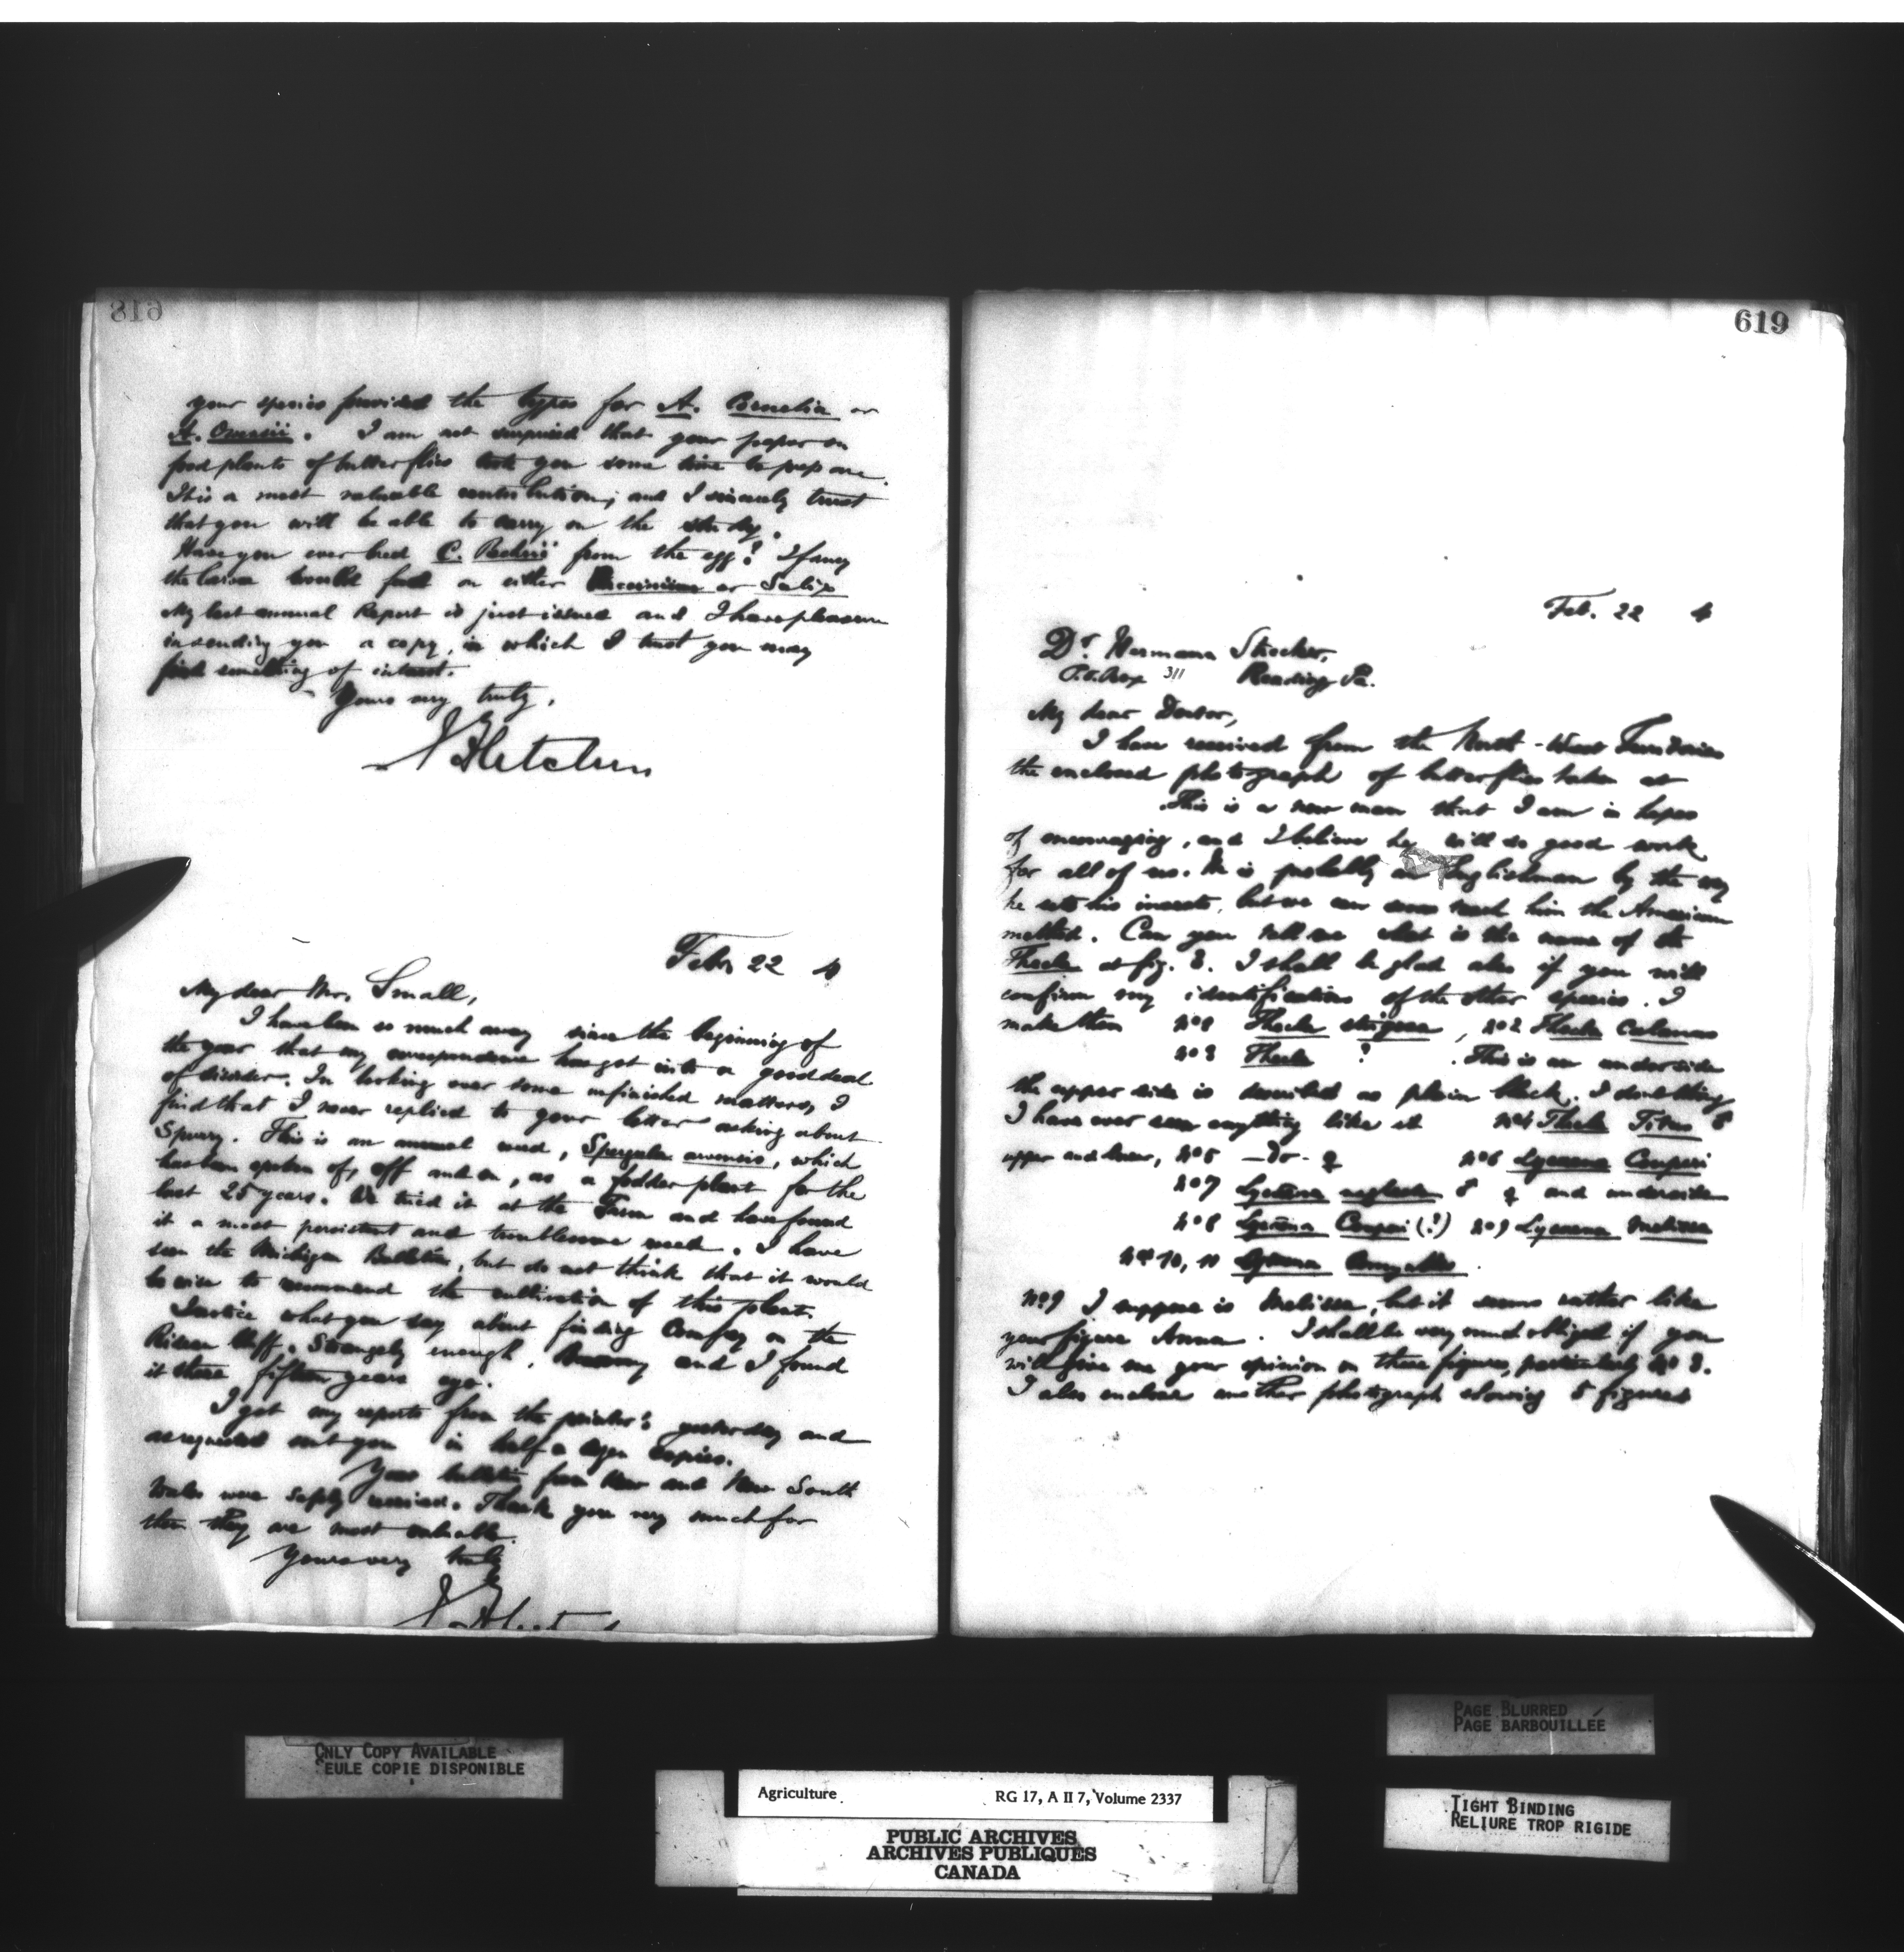 618
your species provided the types for A. or
A. . I am not surprised that your paper on
food plants of butterflies took you some time to prepare.
It is a most valuable contribution; and I sincerely trust
that you will be able to carry on the study.
Have you ever bred C. from the egg? I fancy
the larvae would feed on either Vaccinium or Salix
My last annual Report is just issued and I have pleasure
in sending you a copy, in which I trust you may
find something of interest.
Yours very truly,
J Fletcher
Feb 22
My dear Mr. Small,
I have been so much away since the beginning of
the year that my correspondence has got into a good deal
of disorder. In looking over some unfinished matters, I
find that I never replied to your letter asking about
Spurry. This is an annual weed, Spergula arvensis, which
has been spoken of, off and on, as a fodder plant for the
last 25 years. We tried it at the Farm and have found
it a most persistent and troublesome weed. I have
seen the Michigan Bulletin, but do not think that it would
be wise to recommend the cultivation of this plant.
I notice what you say about finding Comfrey on the
Rideau Bluff. Strangely enough, and I found
it there fifteen years ago.
I got my reports from the printers yesterday and
as requested sent you in half a dozen copies.
Your bulletins from Kew and New South
Wales were safely received. Thank you very much for
them they are most valuable.
Yours very truly
J Fletcher
619
Feb. 22
Dr. Hermann Strecker,
P.O. Box 311 Reading Pa.
My dear Doctor,
I have received from the North-West Territories
the enclosed photograph of butterflies taken at
This is a new man that I am in hopes
of encouraging, and I believe he will do good work
for all of us. He is probably an Englishman by the way
he sets his insects, but we can soon teach him the American
method. Can you tell me what is the name of the
Thecla at fig. 3. I shall be glad also if you will
confirm my identifications of the other species. I
make them No 1 Thecla strigosa, No 2 Thecla Calanus
No 3 Thecla ? . This is an underside
the upper side is described as plain black. I don't think
I have ever seen anything like it No 4 Thecla Titus ♂
upper and lower, No 5 -do- ♀ No 6 Lycaena Couperi
No 7 Lycaena neglecta ♂ ♀ and underside
No 8 Lycaena Couperi (?) No 9 Lycaena Melissa
Nos 10, 11 Lycaena
No 9 I suppose is Melissa, but it seems rather like
your figure Anna. I shall be very much obliged if you
will give me your opinion on these figures, particularly No 3.
I also enclose another photograph showing 5 figures
ONLY COPY AVAILABLE
SEULE COPIE DISPONIBLE
Agriculture RG 17, A II 7, Volume 2337
PUBLIC ARCHIVES
ARCHIVES PUBLIQUES
CANADA
PAGE BLURRED
PAGE BARBOUILLÉE
TIGHT BINDING
RELIURE TROP RIGIDE